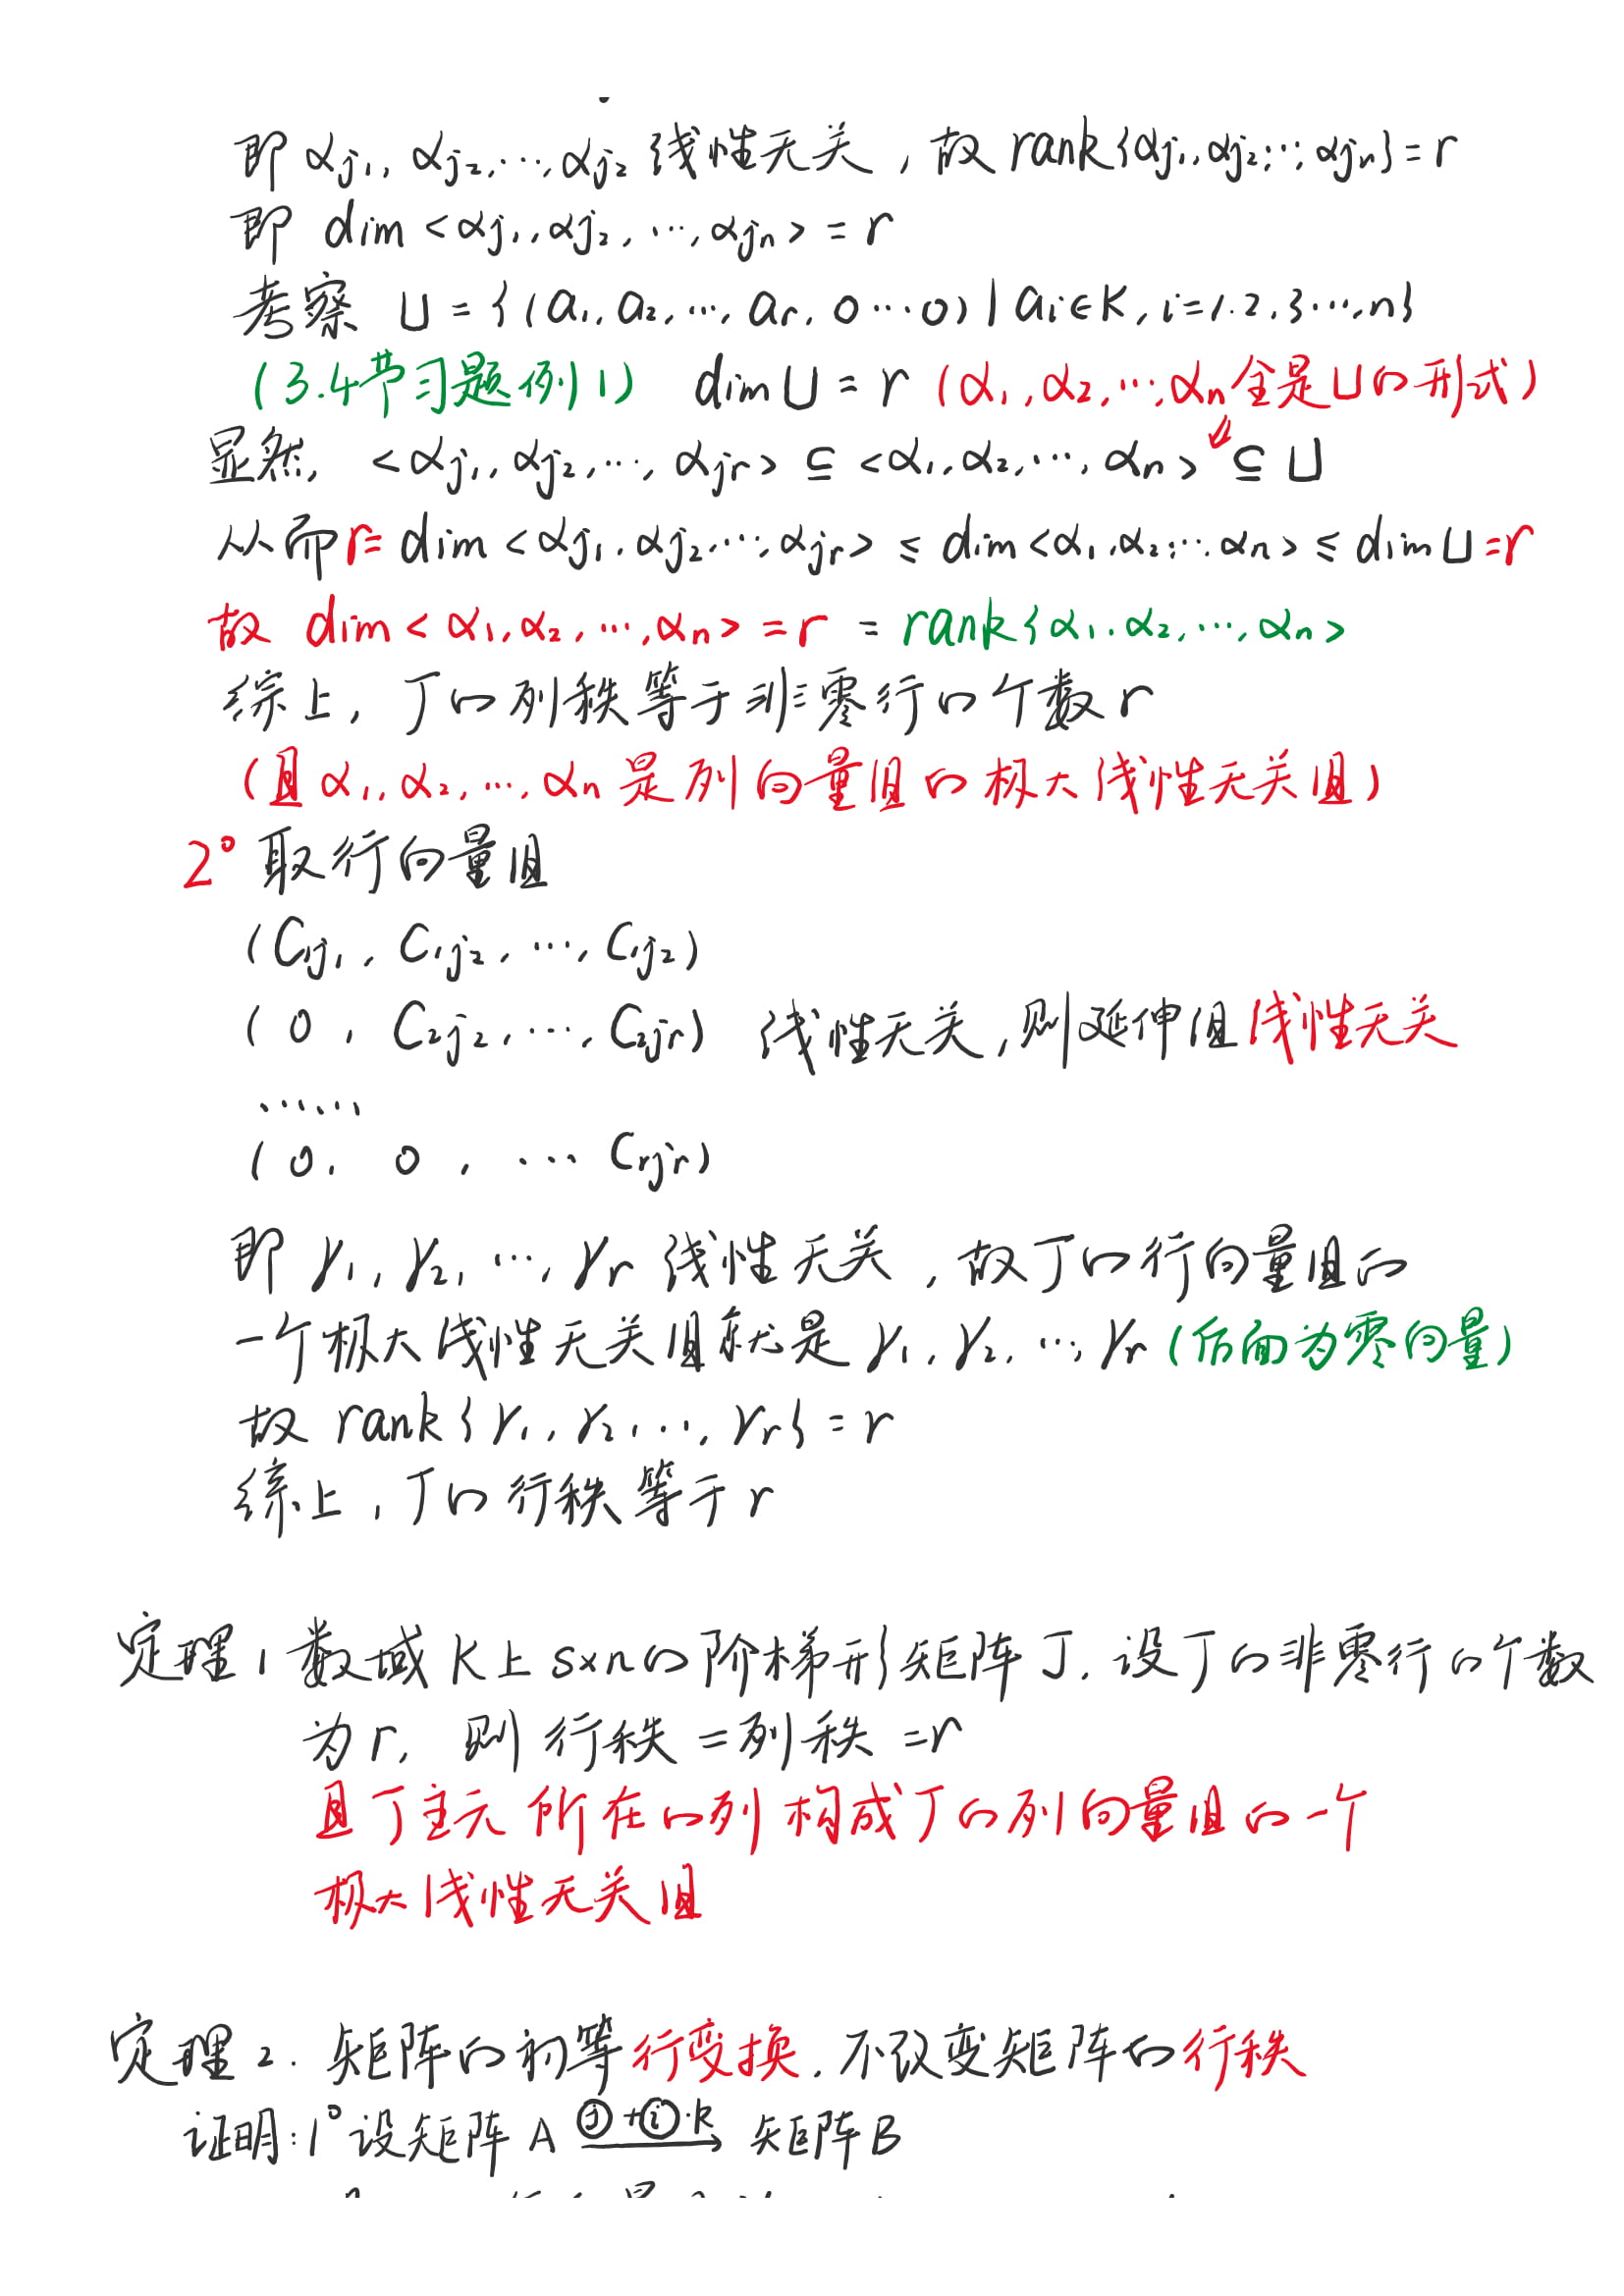 即 αj₁, αj₂, …, αj₂ 线性无关, 故 rank{αj₁, αj₂, …, αjn} = r
即 dim <αj₁, αj₂, …, αjn> = r
考察 U = {(a₁, a₂, …, ar, 0 … 0) | ai∈K, i=1.2.3…,n}
(3.4节习题例1) dim U = r (α₁, α₂, …, αn全是U的形式)
显然, <αj₁, αj₂, …, αjr> ⊆ <α₁, α₂, …, αn> ⊆ U
从而 r= dim <αj₁, αj₂, …, αjr> ≤ dim<α₁, α₂, …, αn> ≤ dim U =r
故 dim< α₁, α₂, …, αn> =r = rank{α₁. α₂, …, αn>
综上, J的列秩等于非零行的个数 r
(且 α₁, α₂, …, αn 是列向量组的极大线性无关组)
2° 取行向量组
(C₁j₁, C₁j₂, …, C₁j₂)
(0, C₂j₂, …, C₂jr) 线性无关, 则延伸组线性无关
……
(0. 0, … Crjr)
即 γ₁, γ₂, …, γr 线性无关, 故J的行向量组的
一个极大线性无关组就是 γ₁, γ₂, …, γr (后面为零向量)
故 rank{γ₁, γ₂, …, γr} = r
综上, J的行秩等于r
定理1 数域K上s×n的阶梯形矩阵J. 设J的非零行的个数
为r, 则行秩 = 列秩 =r
且J主元所在的列构成J的列向量组的一个
极大线性无关组
定理2. 矩阵的初等行变换, 不改变矩阵的行秩
证明: 1° 设矩阵 A ⓙ+ⓘ·k → 矩阵B